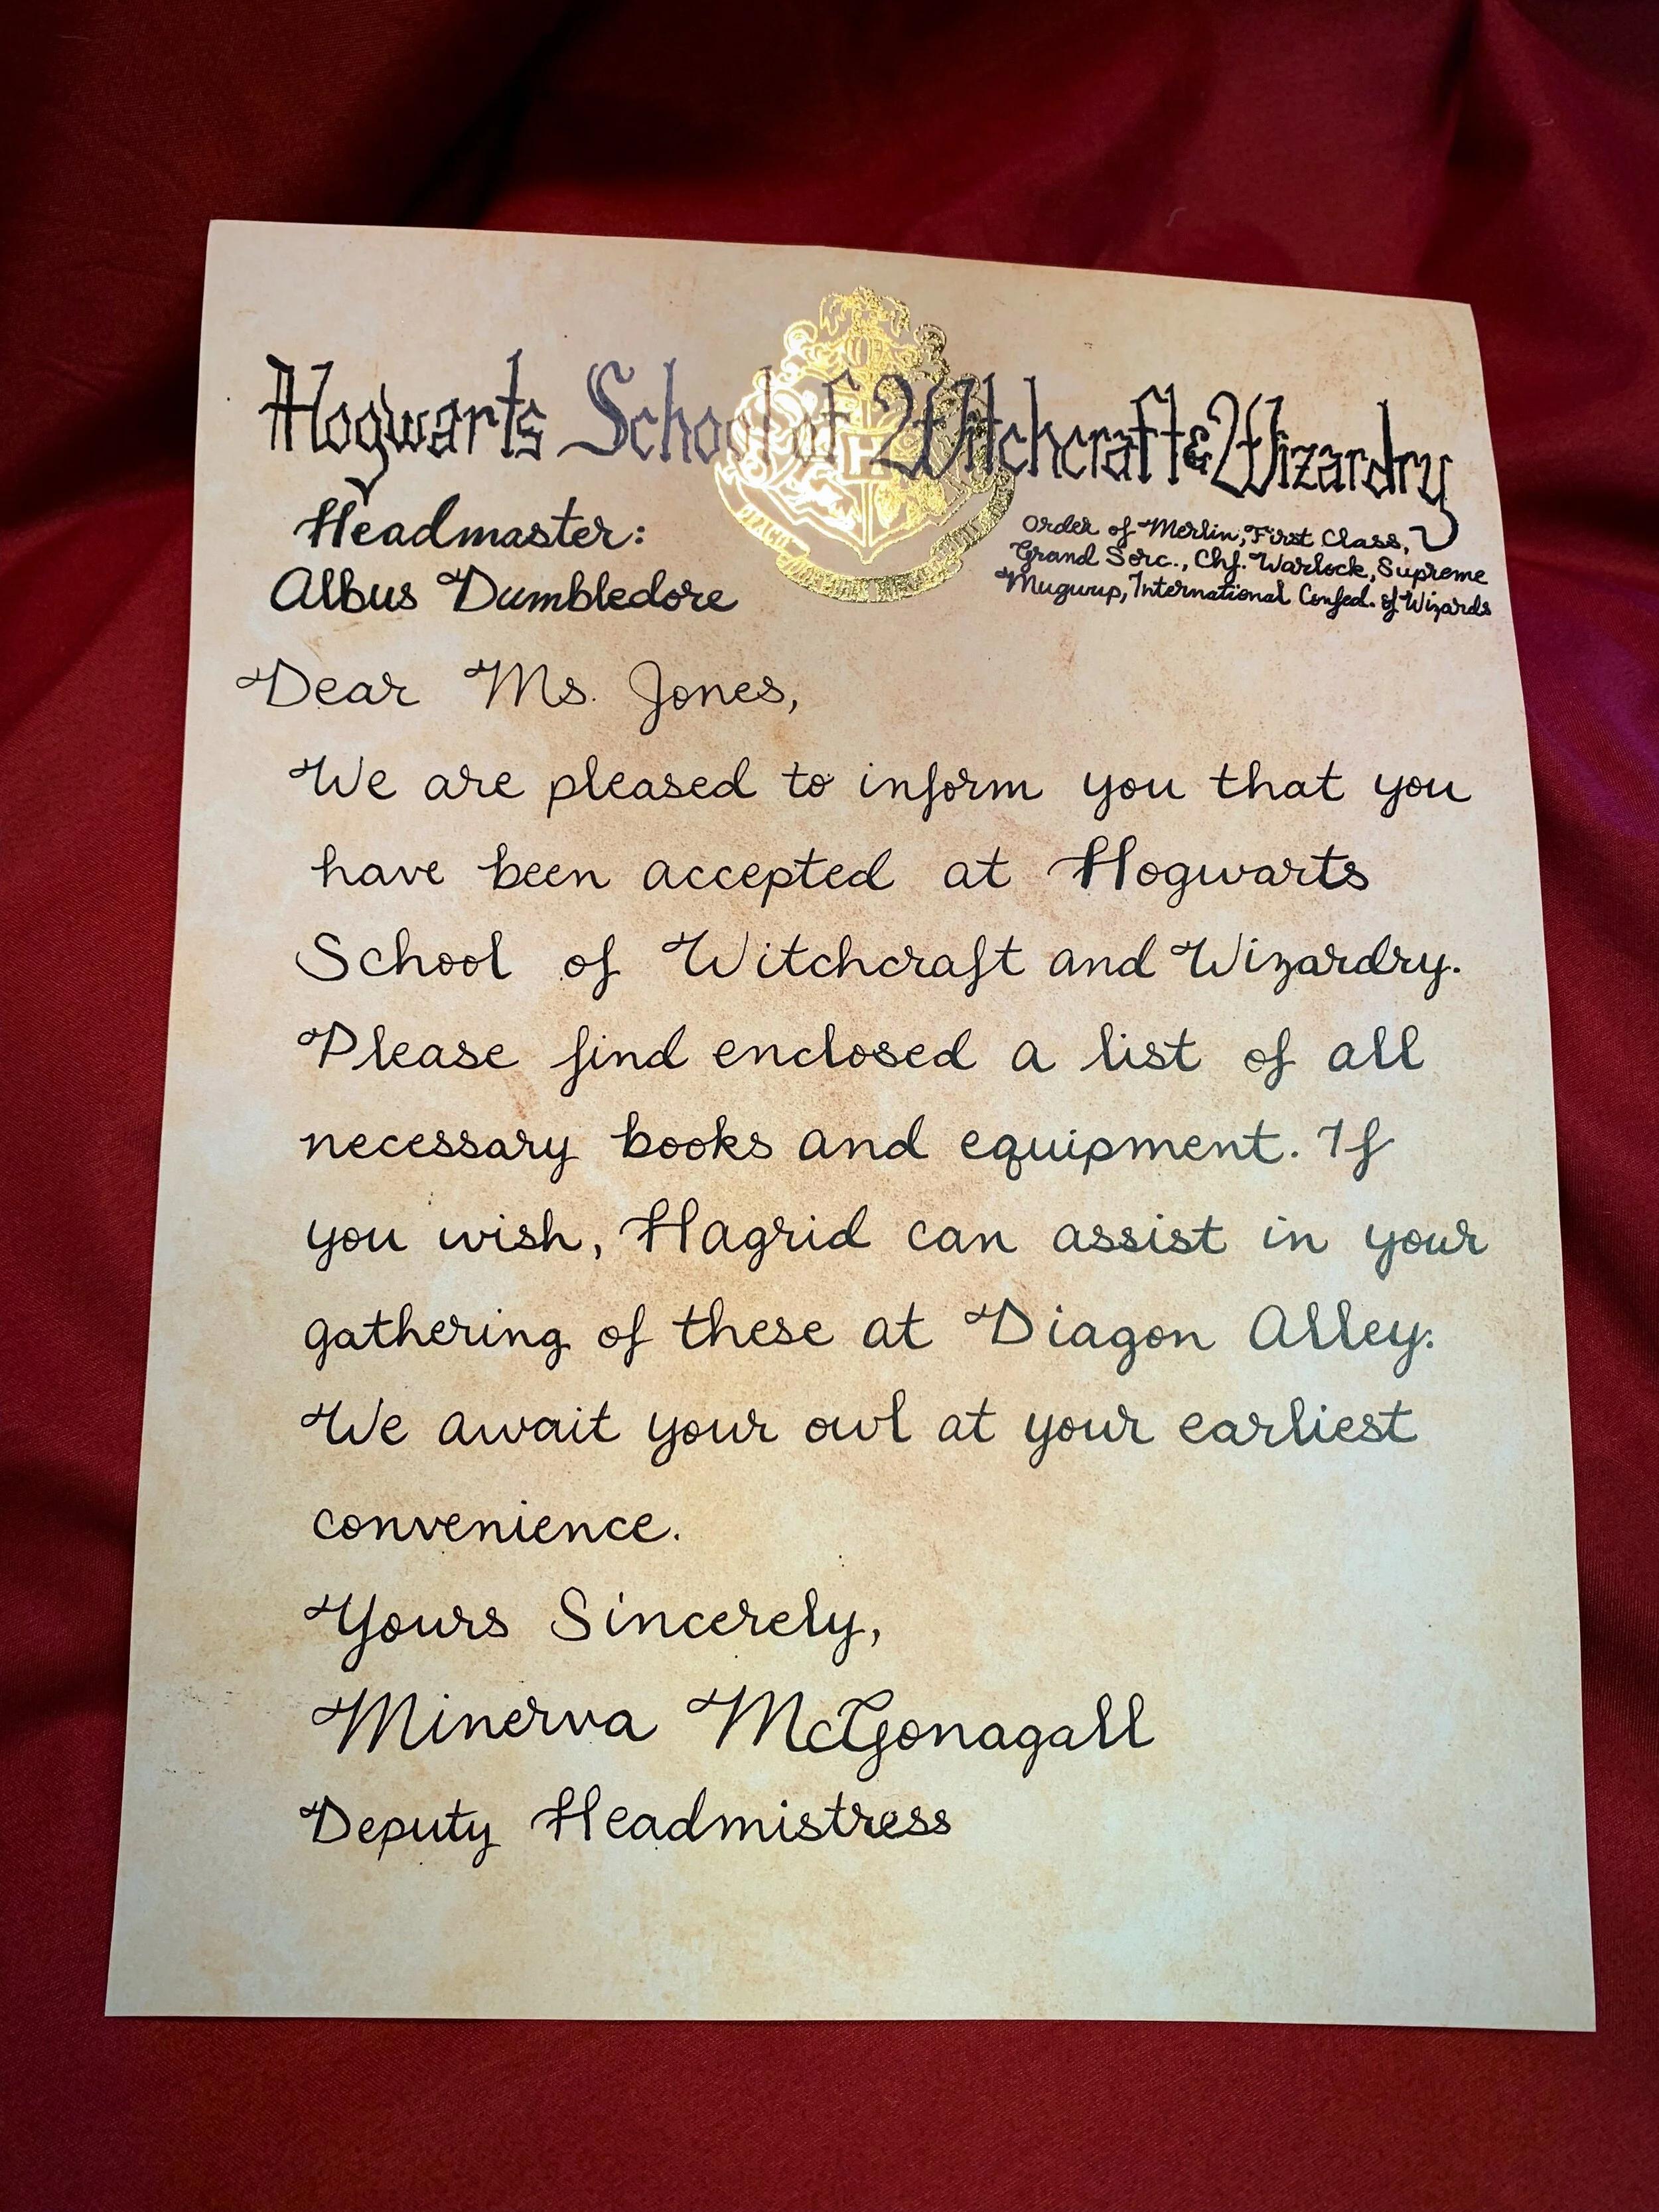 Hogwarts School of Witchcraft & Wizardry
Headmaster:
Albus Dumbledore
Order of Merlin, First Class,
Grand Sorc., Chf. Warlock, Supreme
Mugwump, International Confed. of Wizards
Dear Ms. Jones,
We are pleased to inform you that you
have been accepted at Hogwarts
School of Witchcraft and Wizardry.
Please find enclosed a list of all
necessary books and equipment. If
you wish, Hagrid can assist in your
gathering of these at Diagon Alley.
We await your owl at your earliest
convenience.
Yours Sincerely,
Minerva McGonagall
Deputy Headmistress